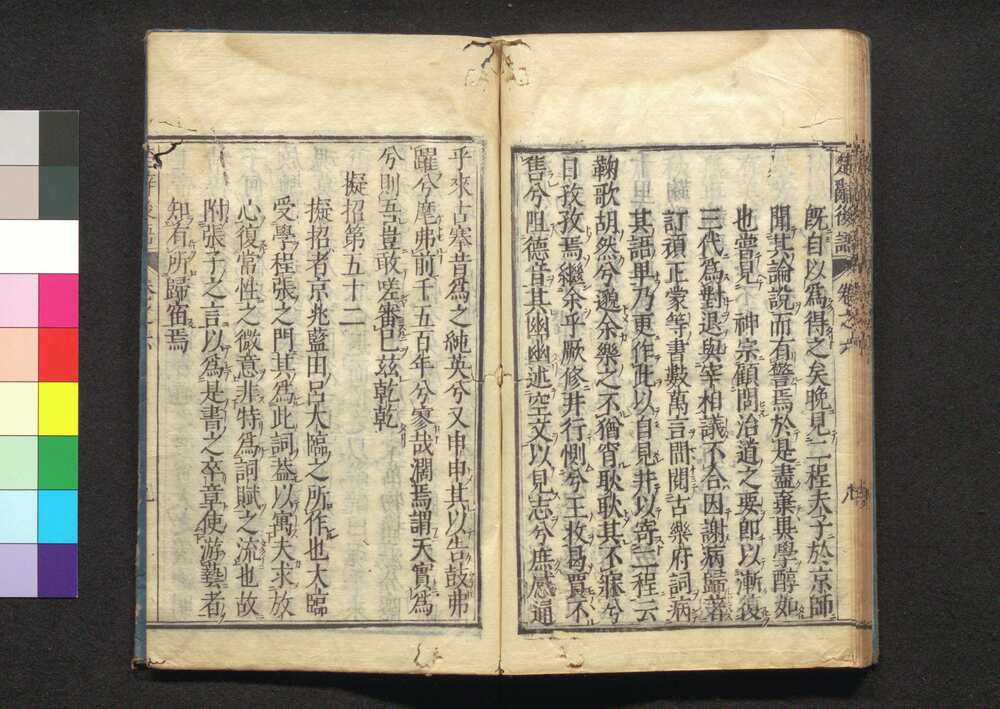 楚辭後語 卷之六
既自以爲得之矣晚見二程夫子於京師
聞其論說而有警焉於是盡棄異學醇如
也嘗見神宗顧問治道之要卽以漸復
三代爲對退與宰相議不合因謝病歸著
訂頑正蒙等書數萬言間閱古樂府詞病
其語卑乃更作此以自見幷以寄二程云
鞠歌胡然兮邈余樂之不猶宵耿耿其不寐兮
日孜孜焉繼余乎厥修井行惻兮王收曷賈不
售兮阻德音其幽幽述空文以見志兮庶感通
乎來古搴昔爲之純英兮又申申其以告鼓弗
躍兮麾弗前千五百年兮寥哉濶焉謂天實爲
兮則吾豈敢嗟審已玆乾乾
擬招第五十二
擬招者京兆藍田呂大臨之所作也大臨
受學程張之門其爲此詞葢以寓夫求放
心復常性之微意非特爲詞賦之流也故
附張子之言以爲是書之卒章使游藝者
知有所歸宿焉